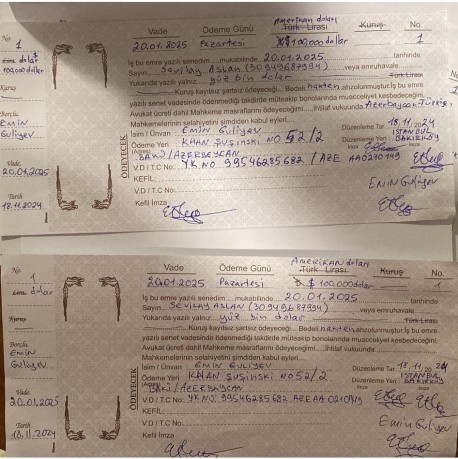 No.
1
dolar
100.000 dolar
Kuruş
Borçlu
Emin
Guliyev
Vade
20.01.2025
Tarih
18.11.2024
Vade
Ödeme Günü
Amerikan doları
Türk Lirası
Kuruş
No.
20.01.2025
Pazartesi
$ 100,000 dollar
1
İş bu emre yazılı senedim... mukabilinde 20.01.2025 tarihinde
Sayın Sevilay Aslan (30949687994) veya emruhavale
Yukarıda yazılı yalnız yüz bin dolar Türk Lirası
Kuruş kayıtsız şartsız ödeyeceğim. Bedeli
yazılı senet vadesinde ödenmediği takdirde müteakip bonolarında muacceliyet kesbedeceğini,
Avukat ücreti dahil Mahkeme masraflarını ödeyeceğimi... İhtilaf vukuunda Azerbaycan
Mahkemelerinin selahiyetini şimdiden kabul eyleri.
ÖDEYECEK
İsim / Ünvan Emin Guliyev
Ödeme Yeri KHAN ŞUŞİNSKİ NO 52/2
(Adres) BAKÜ/AZERBEYCAN
V.D / T.C No: YK.NO 99546285682 / AZE AA0210149
KEFİL
V.D / T.C No:
Kefil İmza
Düzenleme Tar. 18.11.2024
Düzenleme Yeri İSTANBUL
BAKIRKÖY
İmza
İmza
Emin Guliyev
No.
1
Lira dolar
Kuruş
Borçlu
Emin
Guliyev
Vade
20.01.2025
Tarih
18.11.2024
Vade
Ödeme Günü
AMERİKAN doları
Türk Lirası
Kuruş
No.
20.01.2025
Pazartesi
$ 100.000 dolar
1
İş bu emre yazılı senedim... mukabilinde 20.01.2025 tarihinde
Sayın SEVİLAY ASLAN (30949687994) veya emruhavale
Yukarıda yazılı yalnız yüz bin dolar Türk Lirası
Kuruş kayıtsız şartsız ödeyeceğim. Bedeli
yazılı senet vadesinde ödenmediği takdirde müteakip bonolarında muacceliyet kesbedeceğini,
Avukat ücreti dahil Mahkeme masraflarını ödeyeceğimi... İhtilaf vukuunda
Mahkemelerinin selahiyetini şimdiden kabul eyleri.
ÖDEYECEK
İsim / Ünvan EMİN GULİYEV
Ödeme Yeri KHAN ŞUŞİNSKİ NO 52/2
(Adres) BAKÜ/AZERBEYCAN
V.D / T.C No: YK.NO 99546285682 AZE AA 0210149
KEFİL
V.D / T.C No:
Kefil İmza
Düzenleme Tar. 18.11.2024
Düzenleme Yeri İSTANBUL
BAKIRKÖY
İmza
İmza
Emin Guliyev